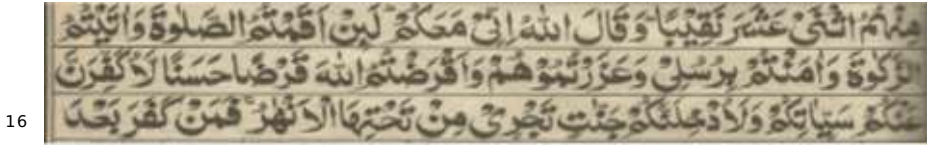 مِنْهُمُ اثْنَىْ عَشَرَ نَقِيْبًا ؕ وَقَالَ اللّٰهُ اِنِّىْ مَعَكُمْ ؕ لَئِنْ اَقَمْتُمُ الصَّلٰوةَ وَاٰتَيْتُمُ
الزَّكٰوةَ وَاٰمَنْتُمْ بِرُسُلِىْ وَعَزَّرْتُمُوْهُمْ وَاَقْرَضْتُمُ اللّٰهَ قَرْضًا حَسَنًا لَّاُكَفِّرَنَّ
16 عَنْكُمْ سَيِّاٰتِكُمْ وَلَاُدْخِلَنَّكُمْ جَنّٰتٍ تَجْرِىْ مِنْ تَحْتِهَا الْاَنْهٰرُ ۚ فَمَنْ كَفَرَ بَعْدَ